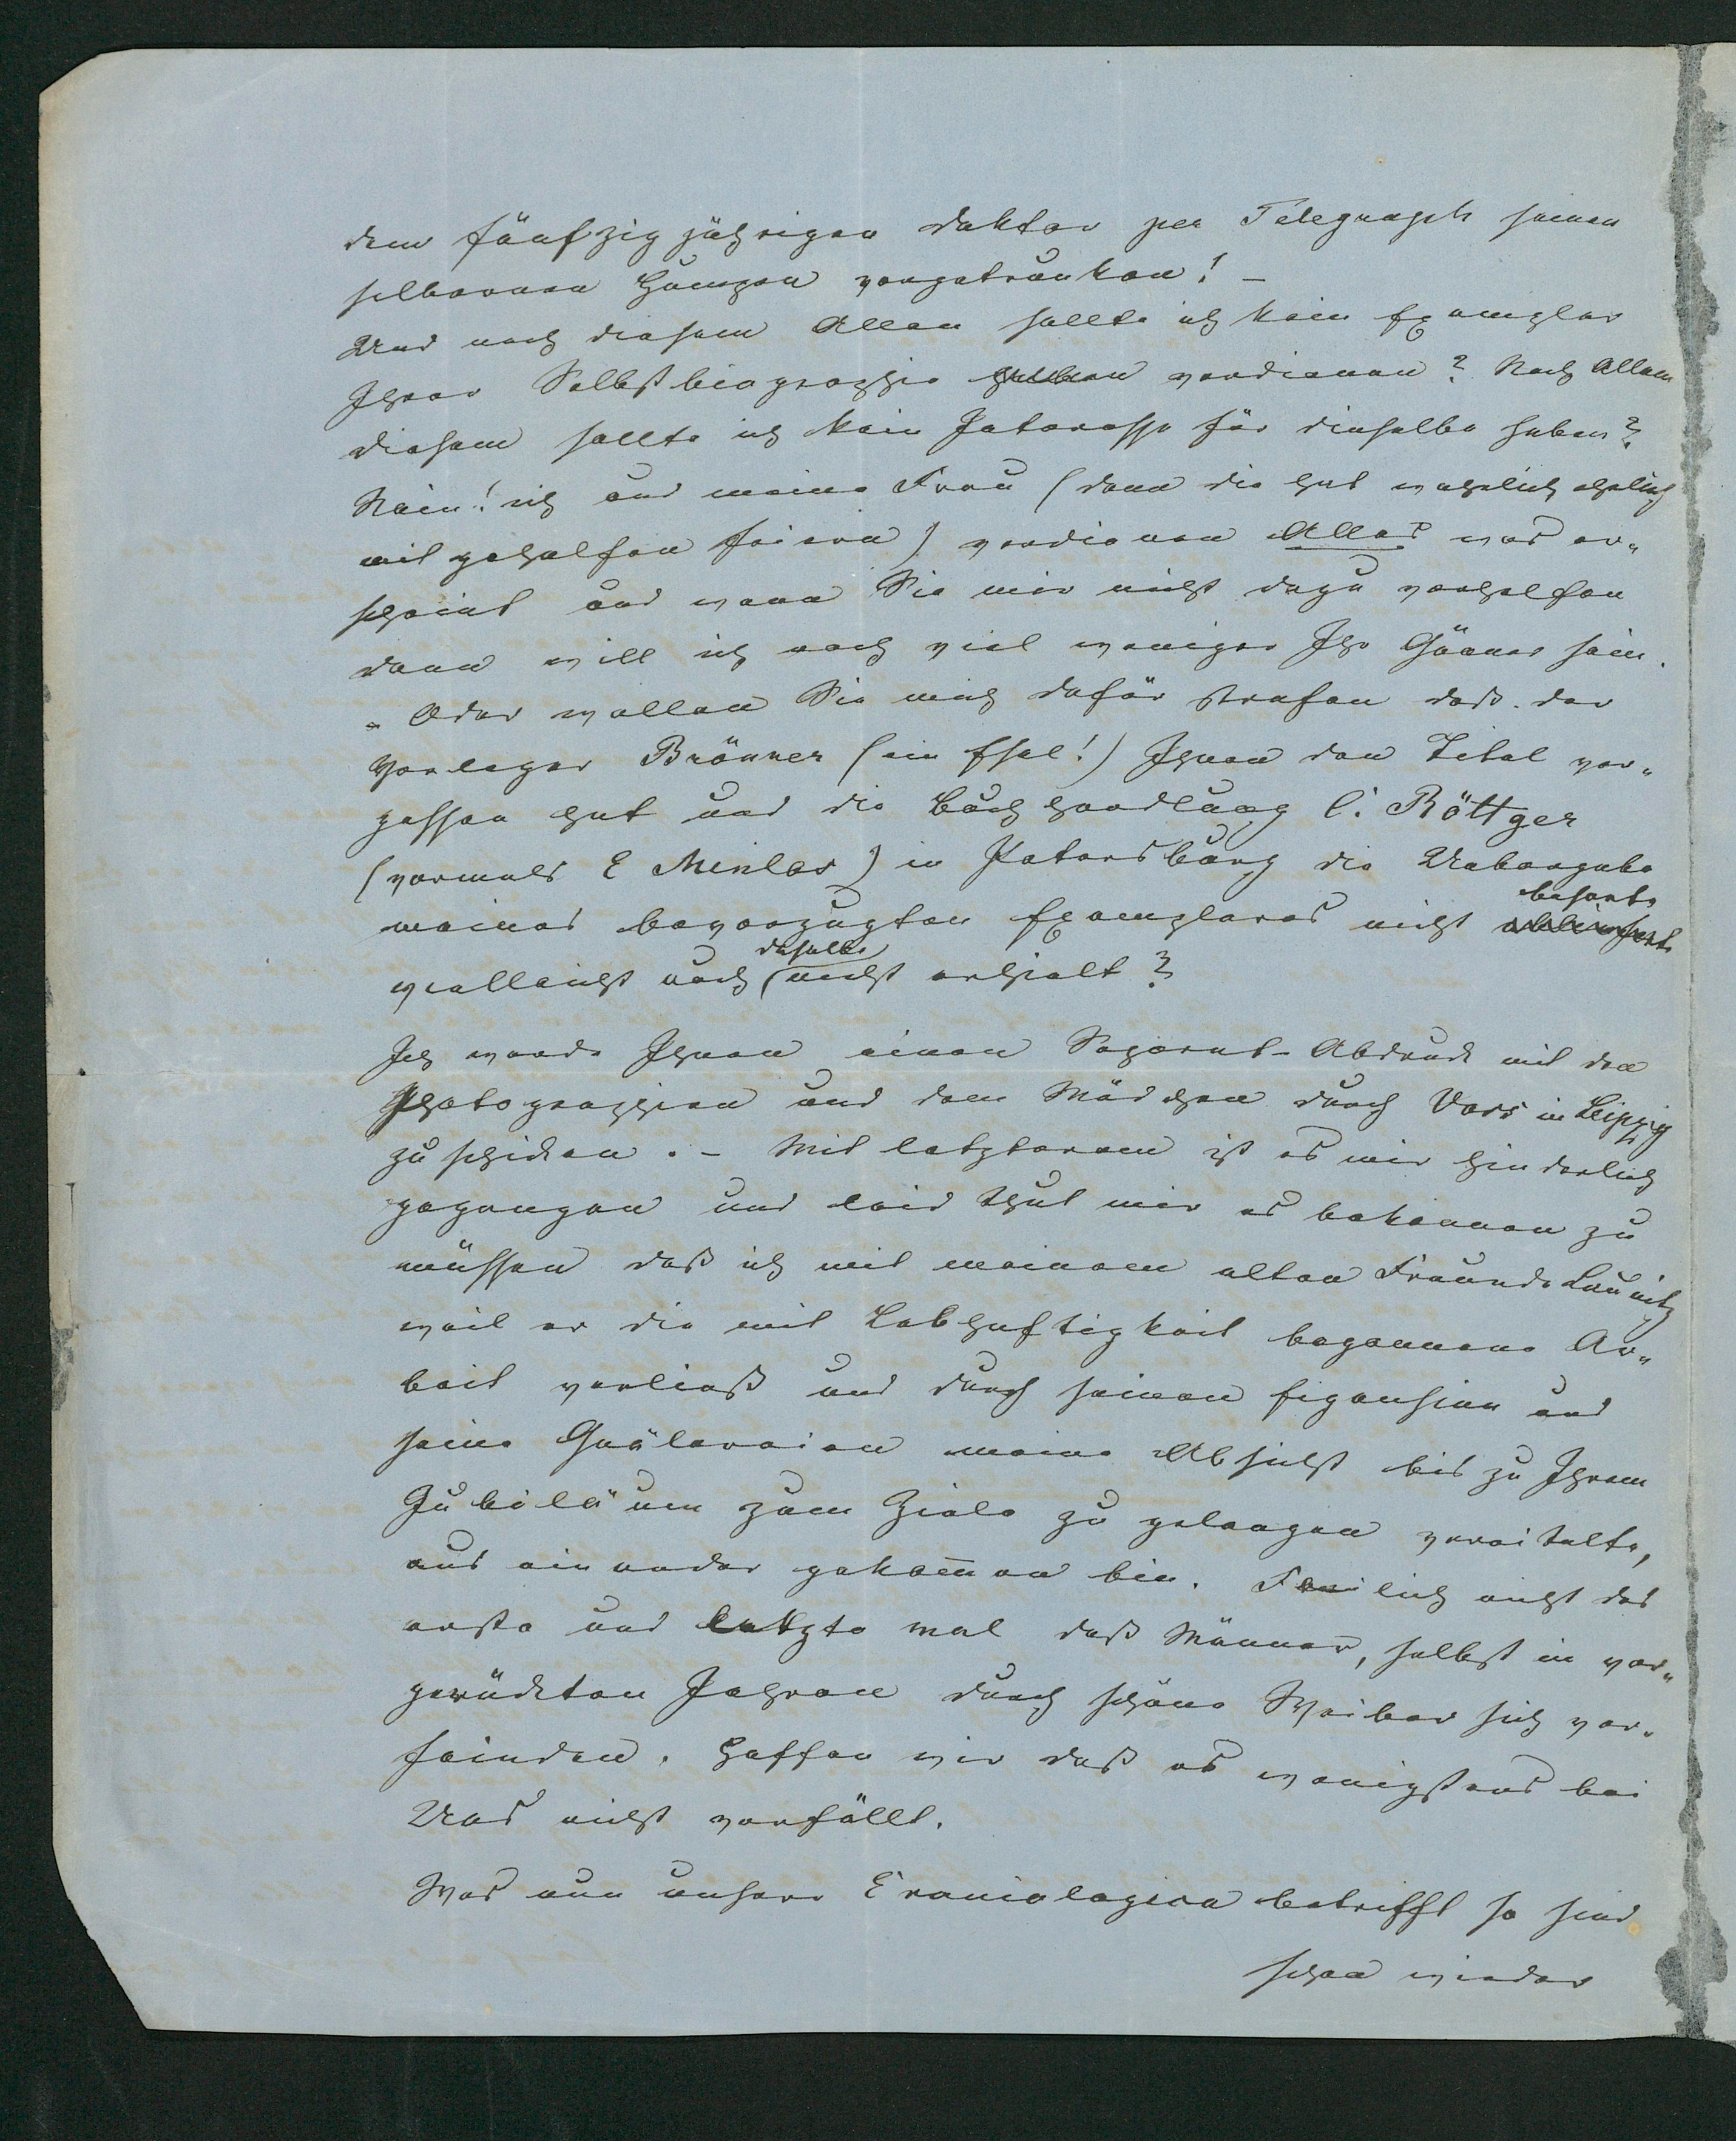 dem fünfzigjährigen Doktor per Telegraph seinen
silbernen Humpen vorgetrunken! –
Und nach diesem Allen sollte ich kein Exemplar
Ihrer Selbstbiographie verdienen? Nach Allem
diesem sollte ich kein Interesse für dieselbe haben?
Nein! ich und meine Frau (denn die hat wahrlich ehrlich
mit geholfen feiern) verdienen Alles was er„
scheint und wenn Sie mir nicht dazu verhelfen
dann will ich noch viel weniger Ihr Gönner sein.
– Oder wollen Sie mich dafür strafen daß der
Verleger Brönner (ein Esel!) Ihnen den Titel ver„
gessen hat und die Buchhandlung C. Röttger
(vormals E Minlos) in Petersburg die Uebergabe
besorgte
meines bevorzugten Exemplares nicht
dasselbe
vielleicht noch nicht erhielt?
Ich werde Ihnen einen Separat-Abdruck mit den
Photographien und dem Mädchen durch Voss in Leipzig
zu schicken. – Mit letzterem ist es mir hinderlich
gegangen und leid thut mir es bekennen zu
müssen daß ich mit meinem alten Freunde Launitz
weil er die mit Lebhaftigkeit begonnene Ar„
beit verließ und durch seinen Eigensinn und
seine Quälereien meine Absicht bis zu Ihrem
Jubiläum zum Ziele zu gelangen vereitelte,
aus einander gekom̅en bin. Freilich nicht das
erste und letzte mal daß Männer, selbst in vor„
gerückten Jahren durch schöne Weiber sich ver„
feinden. Hoffen wir daß es wenigstens bei
Uns nicht vorfällt.
Was nun unsere Craniologica betrifft so sind
schon wieder